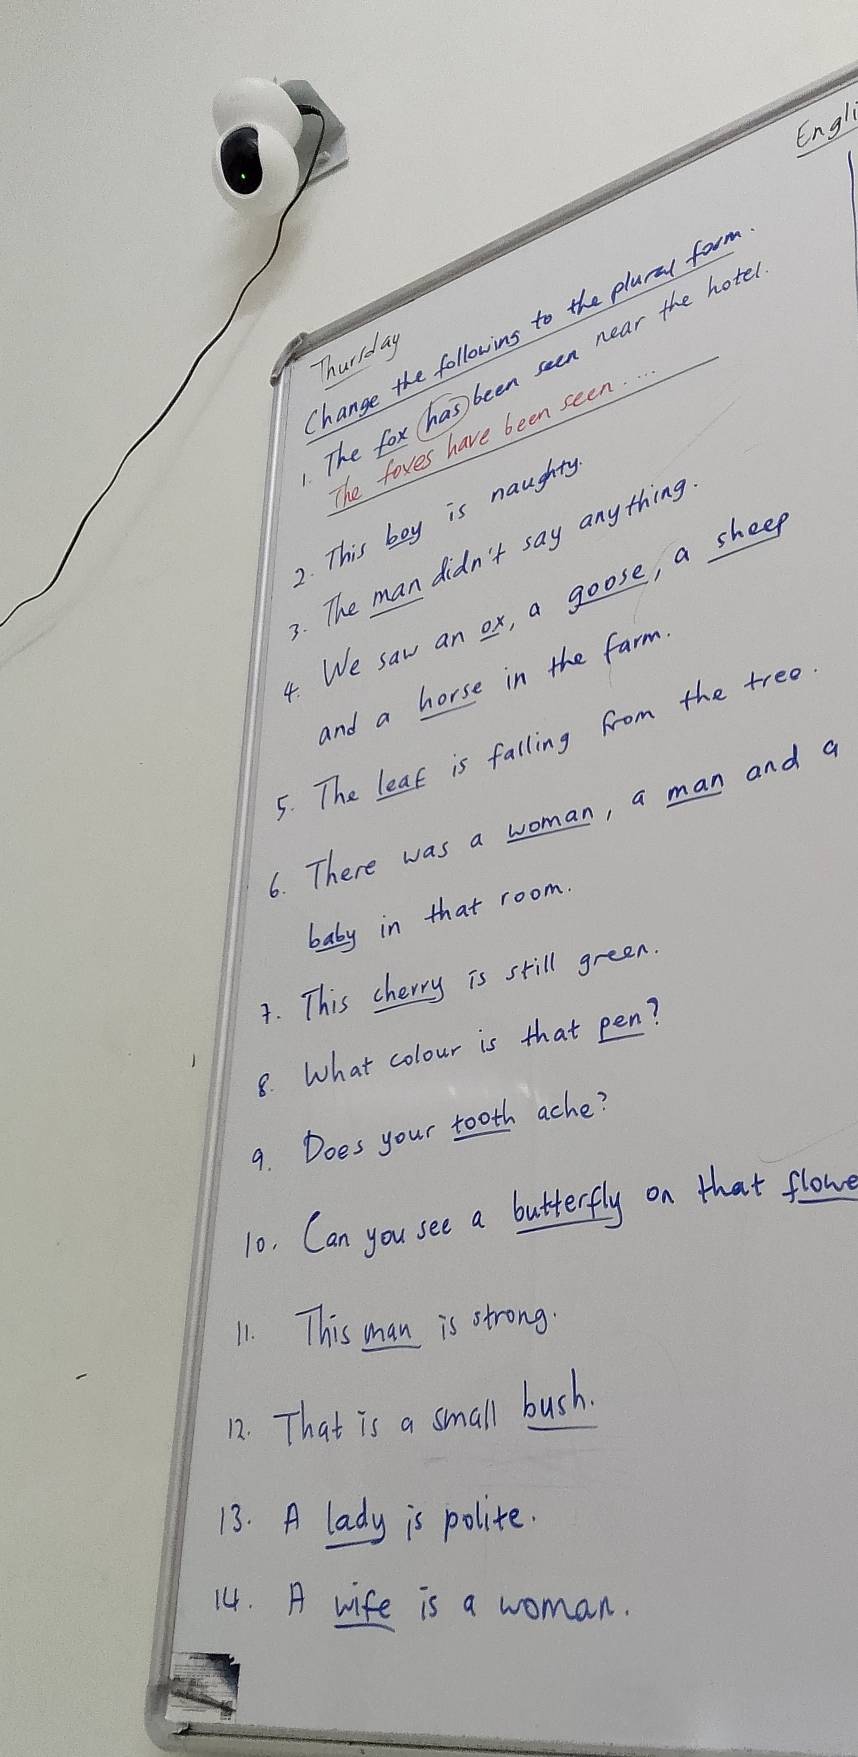 Engli
Thursday
Change the following to the plural form.
1. The fox has been seen near the hotel.
The foxes have been seen....
2. This boy is naughty.
3. The man didn't say anything.
4. We saw an ox, a goose, a sheep
and a horse in the farm.
5. The leaf is falling from the tree.
6. There was a woman, a man and a
baby in that room.
7. This cherry is still green.
8. What colour is that pen?
9. Does your tooth ache?
10. Can you see a butterfly on that flowe
11. This man is strong.
12. That is a small bush.
13. A lady is polite.
14. A wife is a woman.